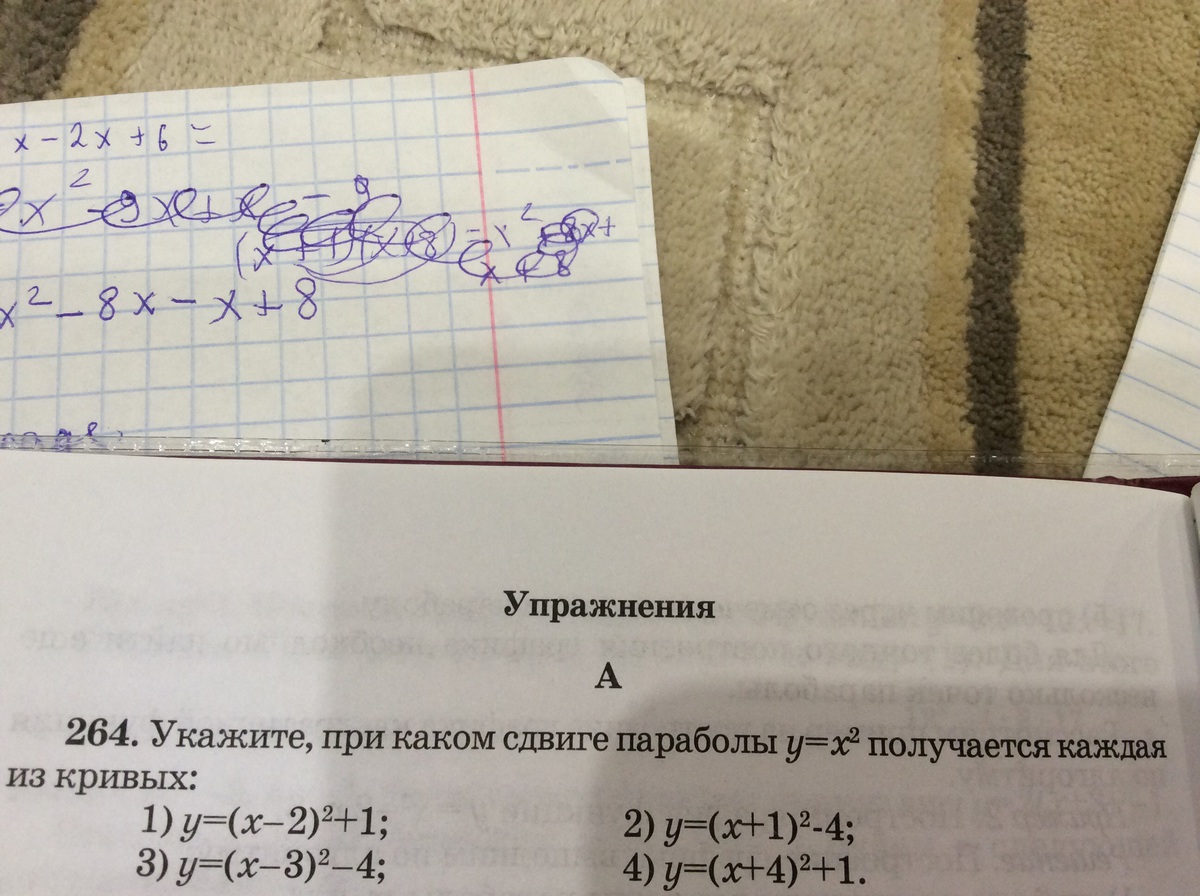 x - 2x + 6 =
x² - 8x - x + 8
Упражнения
А
264. Укажите, при каком сдвиге параболы y=x² получается каждая
из кривых:
1) y=(x–2)²+1; 2) y=(x+1)²-4;
3) y=(x–3)²–4; 4) y=(x+4)²+1.